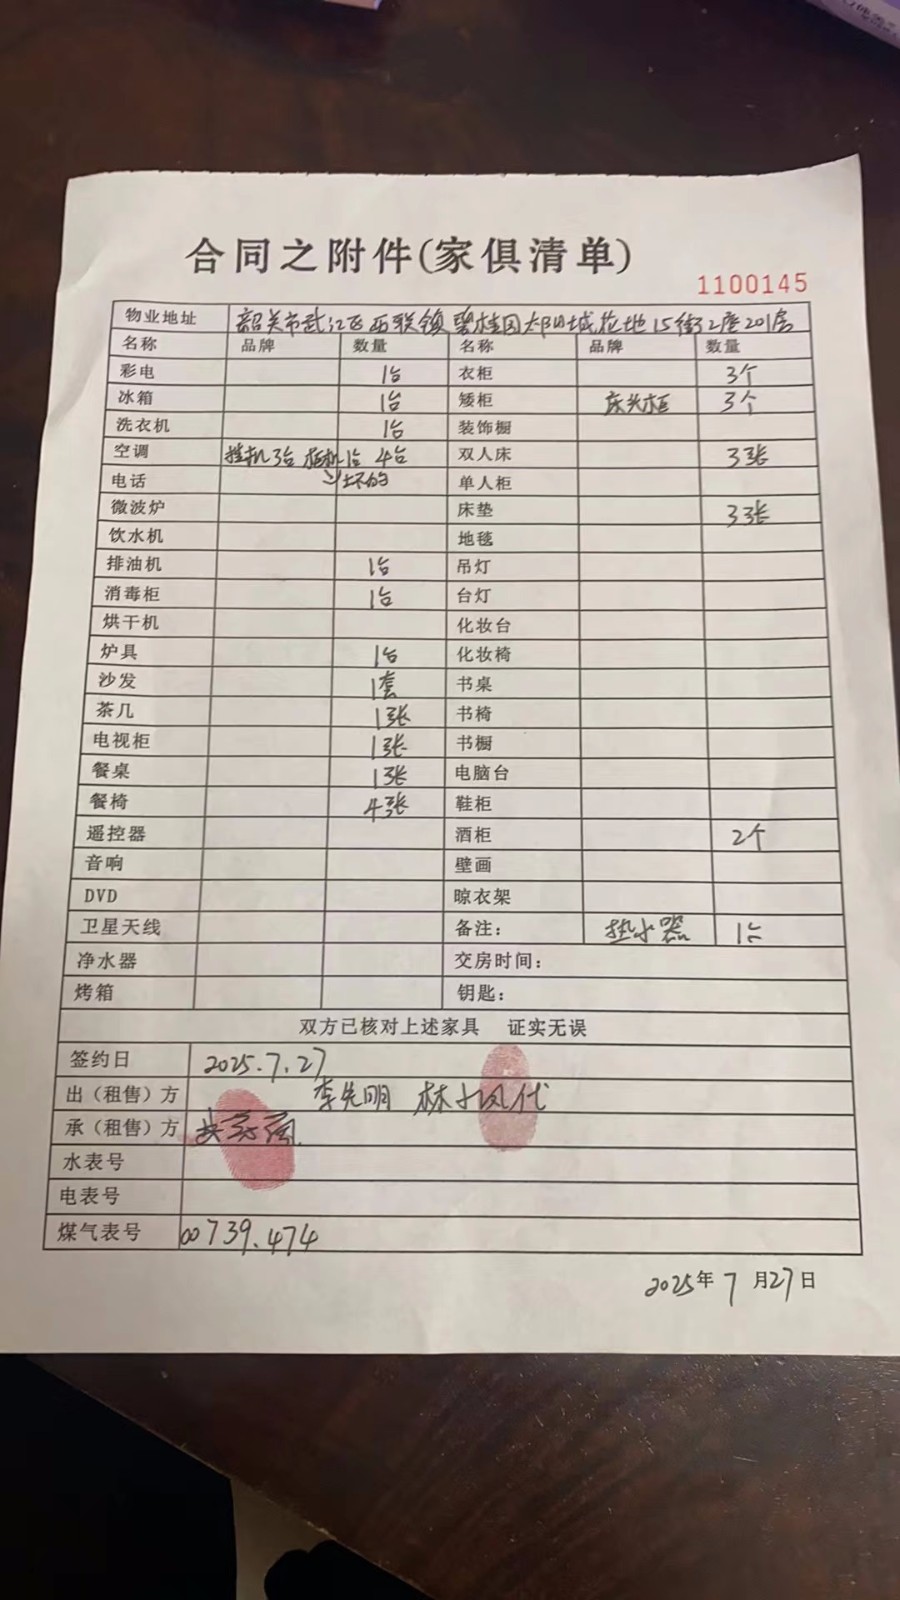 合同之附件(家俱清单)
1100145
物业地址 韶关市武江区西联镇碧桂园太阳城花地15街2座201房
名称 品牌 数量 名称 品牌 数量
彩电 1台 衣柜 3个
冰箱 1台 矮柜 床头柜 3个
洗衣机 1台 装饰橱
空调 挂机3台 柜机1台 4台 双人床 3张
电话 坏的 单人柜
微波炉 床垫 3张
饮水机 地毯
排油机 1台 吊灯
消毒柜 1台 台灯
烘干机 化妆台
炉具 1台 化妆椅
沙发 1套 书桌
茶几 1张 书椅
电视柜 1张 书橱
餐桌 1张 电脑台
餐椅 4张 鞋柜
遥控器 酒柜 2个
音响 壁画
DVD 晾衣架
卫星天线 备注: 热水器 1台
净水器 交房时间:
烤箱 钥匙:
双方已核对上述家具 证实无误
签约日 2025.7.27
出（租售）方 李先明 林小凤代
承（租售）方
水表号
电表号
煤气表号 00739.474
2025年7月27日